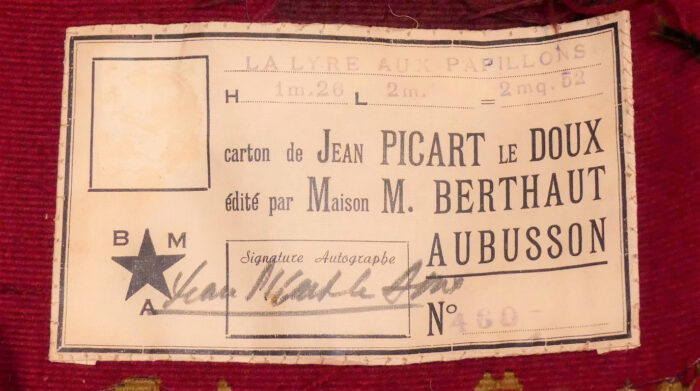 LA LYRE AUX PAPILLONS
H 1m.26 L 2m. = 2mq.52
carton de JEAN PICART LE DOUX
édité par MAISON M. BERTHAUT
AUBUSSON
B M
A
Signature Autographe
Jean Picart le Doux
N° 460